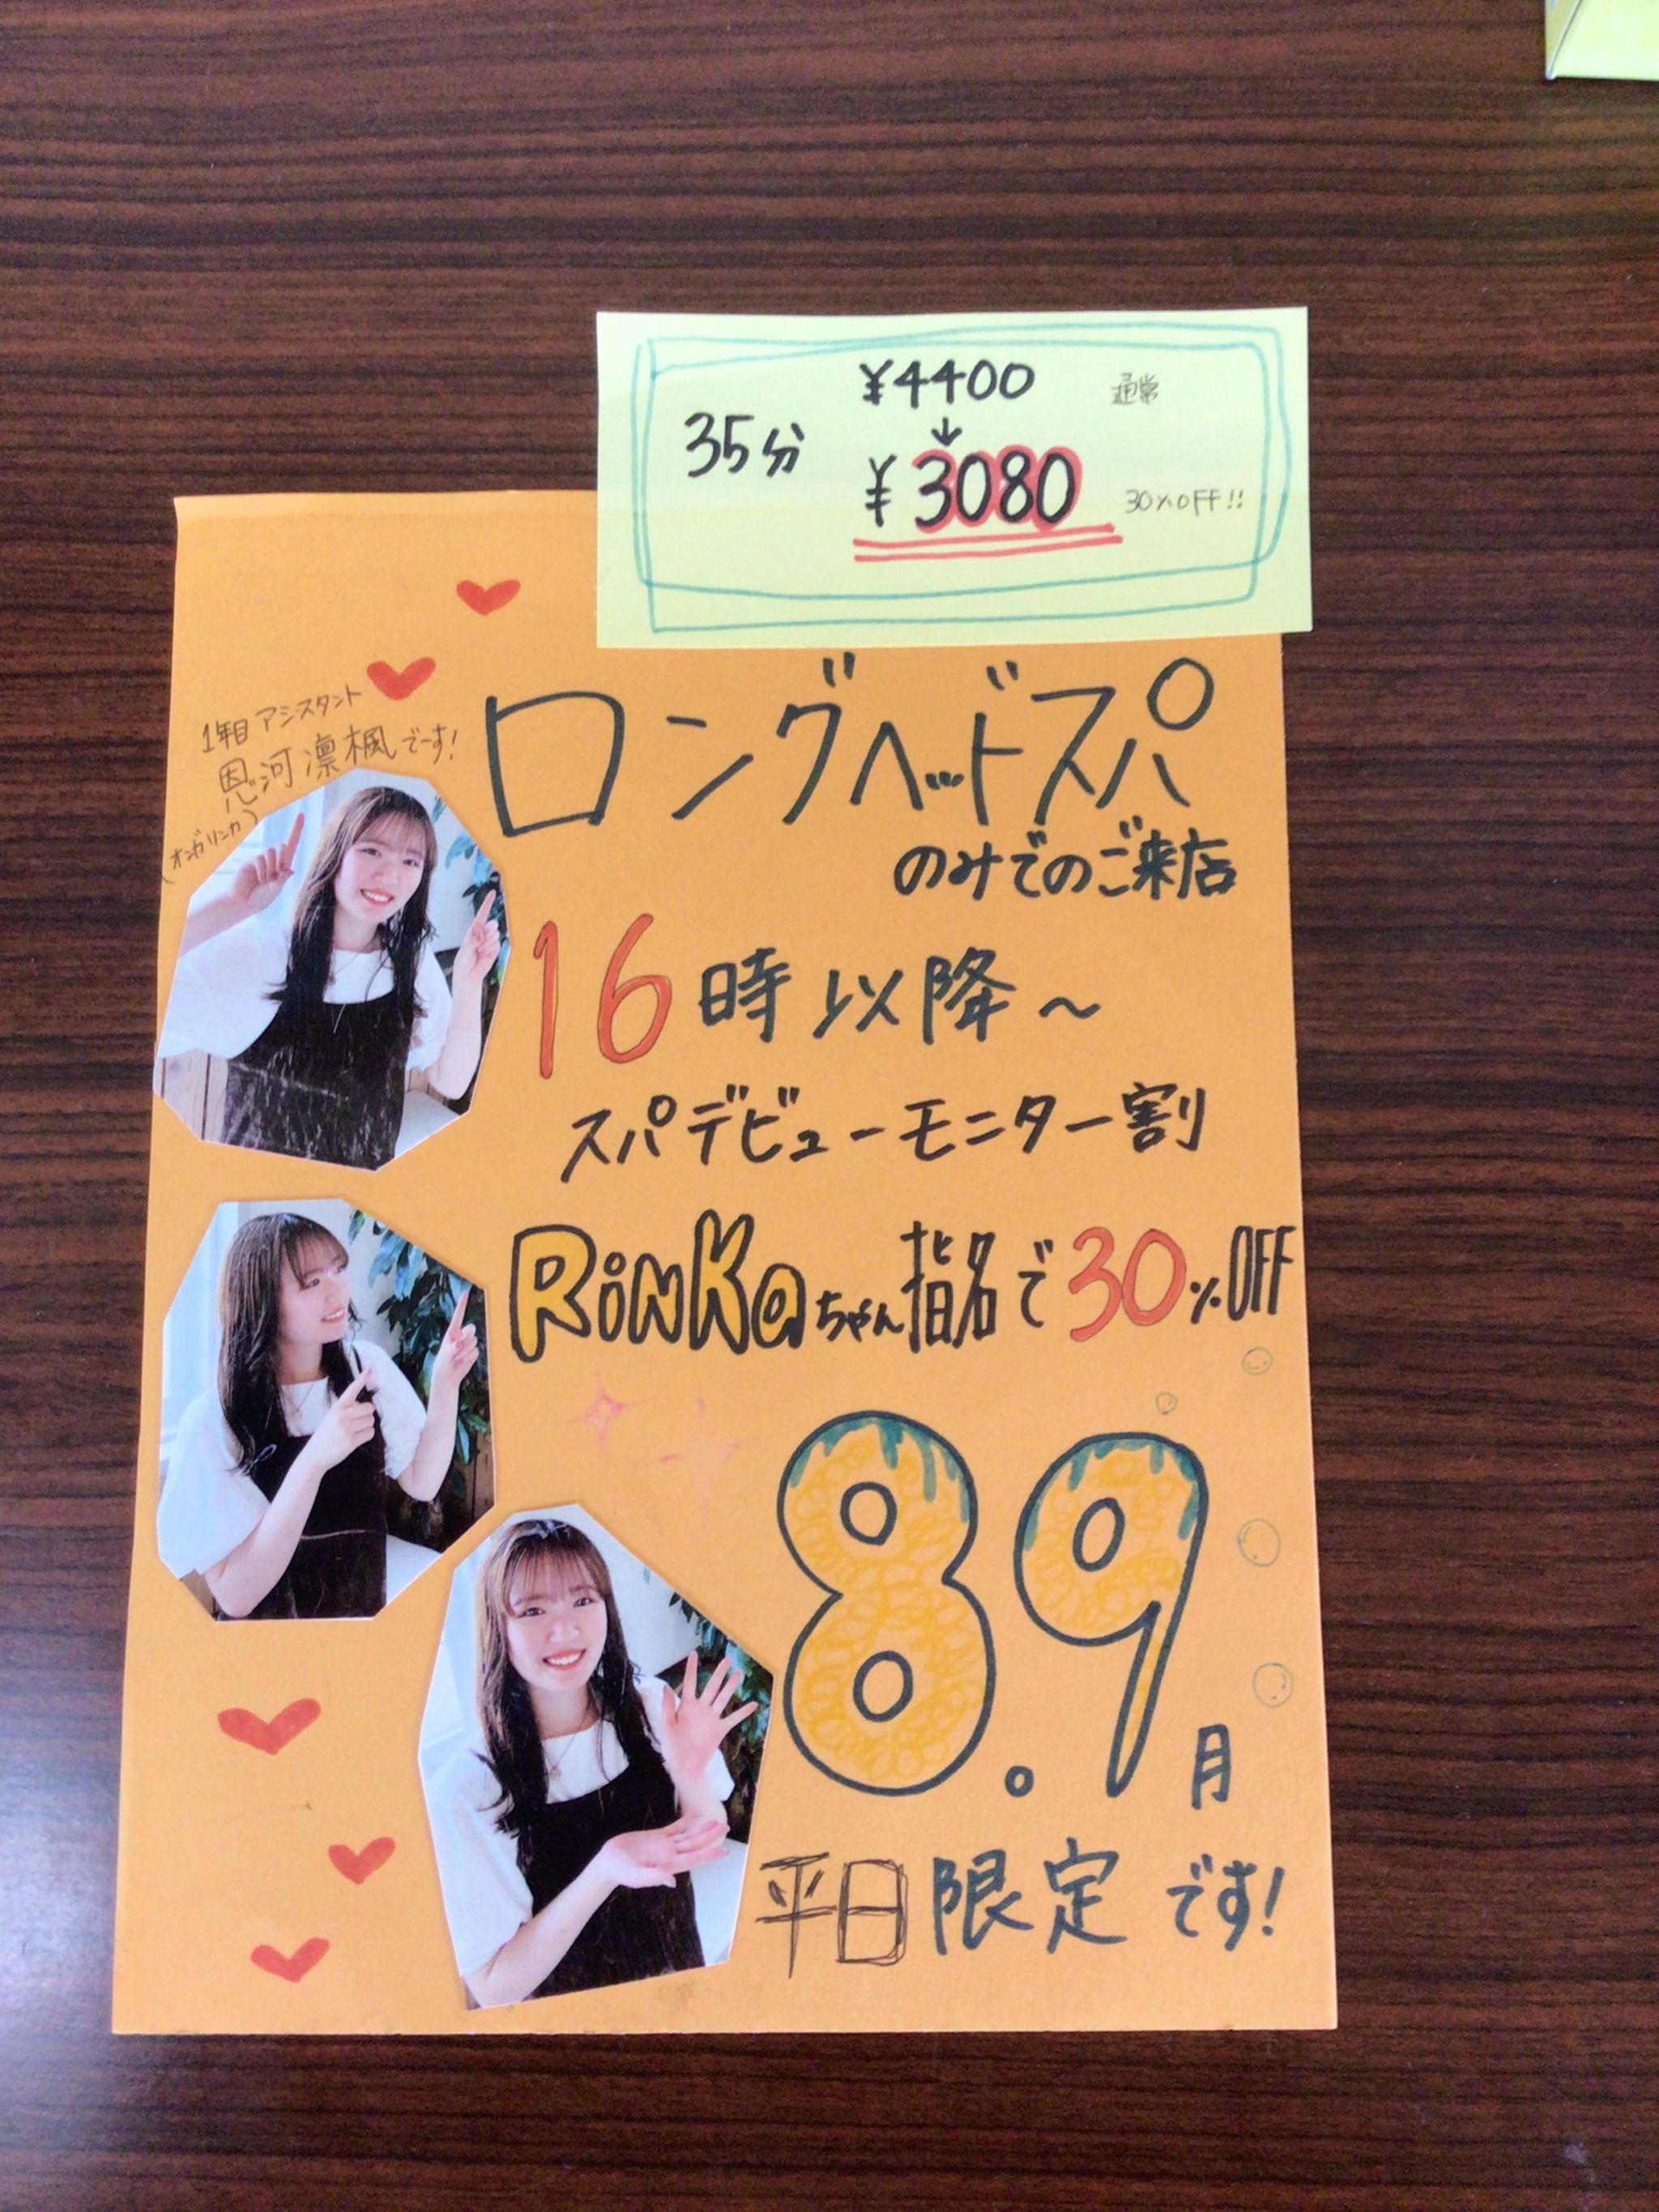 ¥4400 通常
↓
35分 ¥3080 30%OFF!!
1年目アシスタント
恩河凛楓でーす!
(オンガリンカ)
ロングヘッドスパ
のみでのご来店
16時以降~
スパデビューモニター割
RiNKaちゃん指名で30%OFF
8.9月
平日限定です!